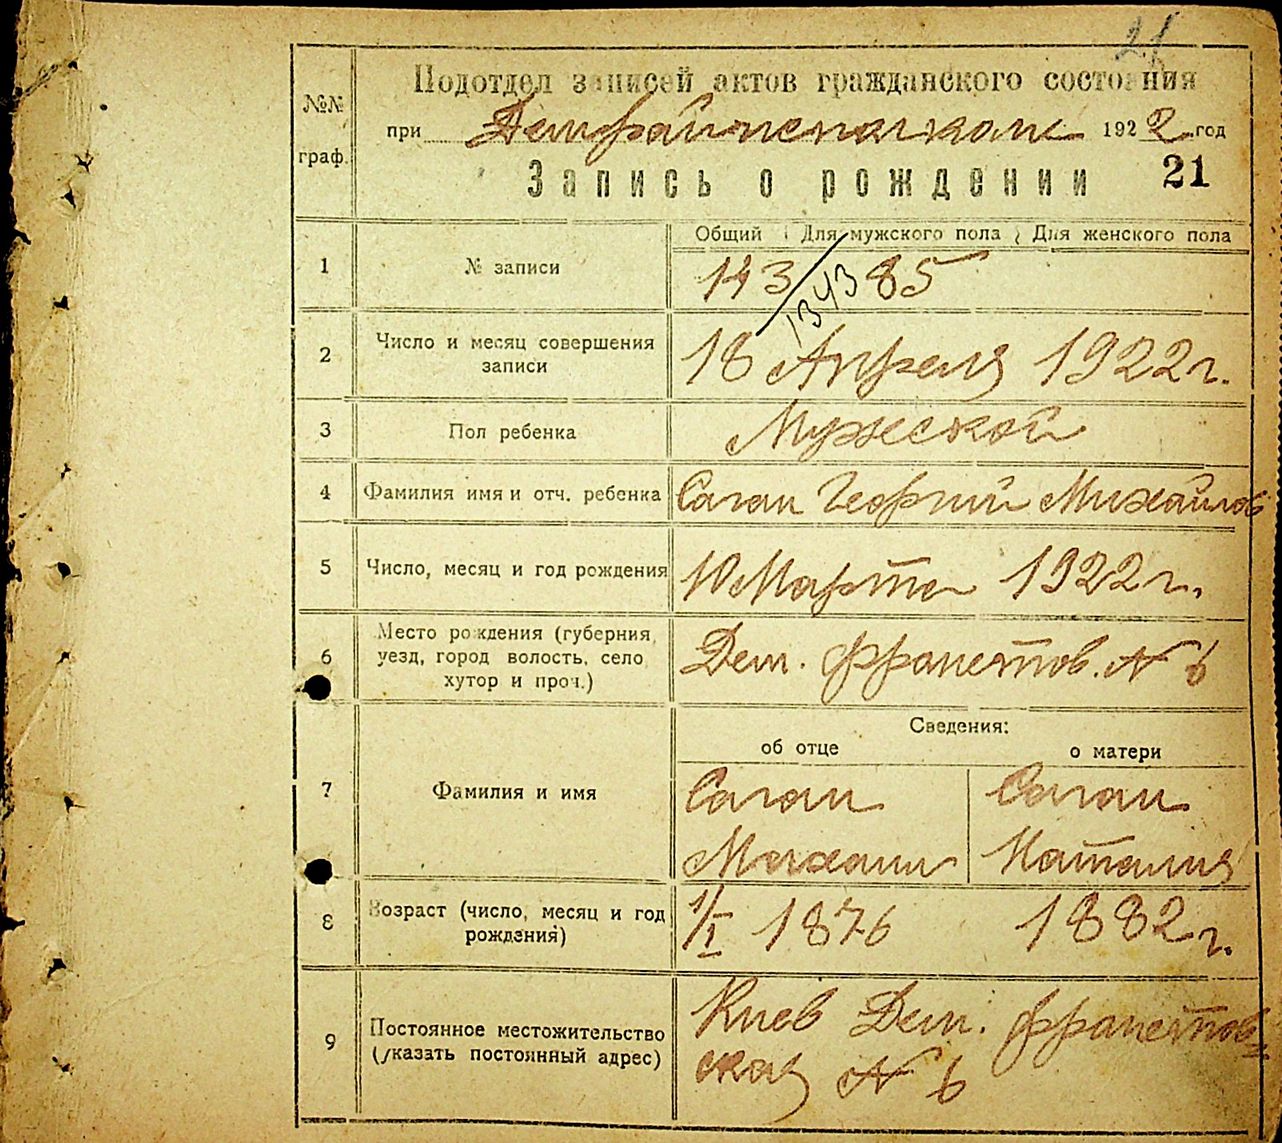 21
Подотдел записей актов гражданского состояния
№№ граф.
при Демрайисполкоме 1922 год
Запись о рождении 21
Общий Для мужского пола Для женского пола
1 № записи 143 85
1343
2 Число и месяц совершения записи 18 Апреля 1922 г.
3 Пол ребенка Мужской
4 Фамилия имя и отч. ребенка Саган Георгий Михайлов
5 Число, месяц и год рождения 10 Марта 1922 г.
6 Место рождения (губерния, уезд, город волость, село хутор и проч.) Дем. N 6
Сведения:
об отце о матери
7 Фамилия и имя Саган Саган
Михаил Наталия
8 Возраст (число, месяц и год рождения) 1/I 1876 1882 г.
9 Постоянное местожительство (указать постоянный адрес) Киев Дем.
ская N 6